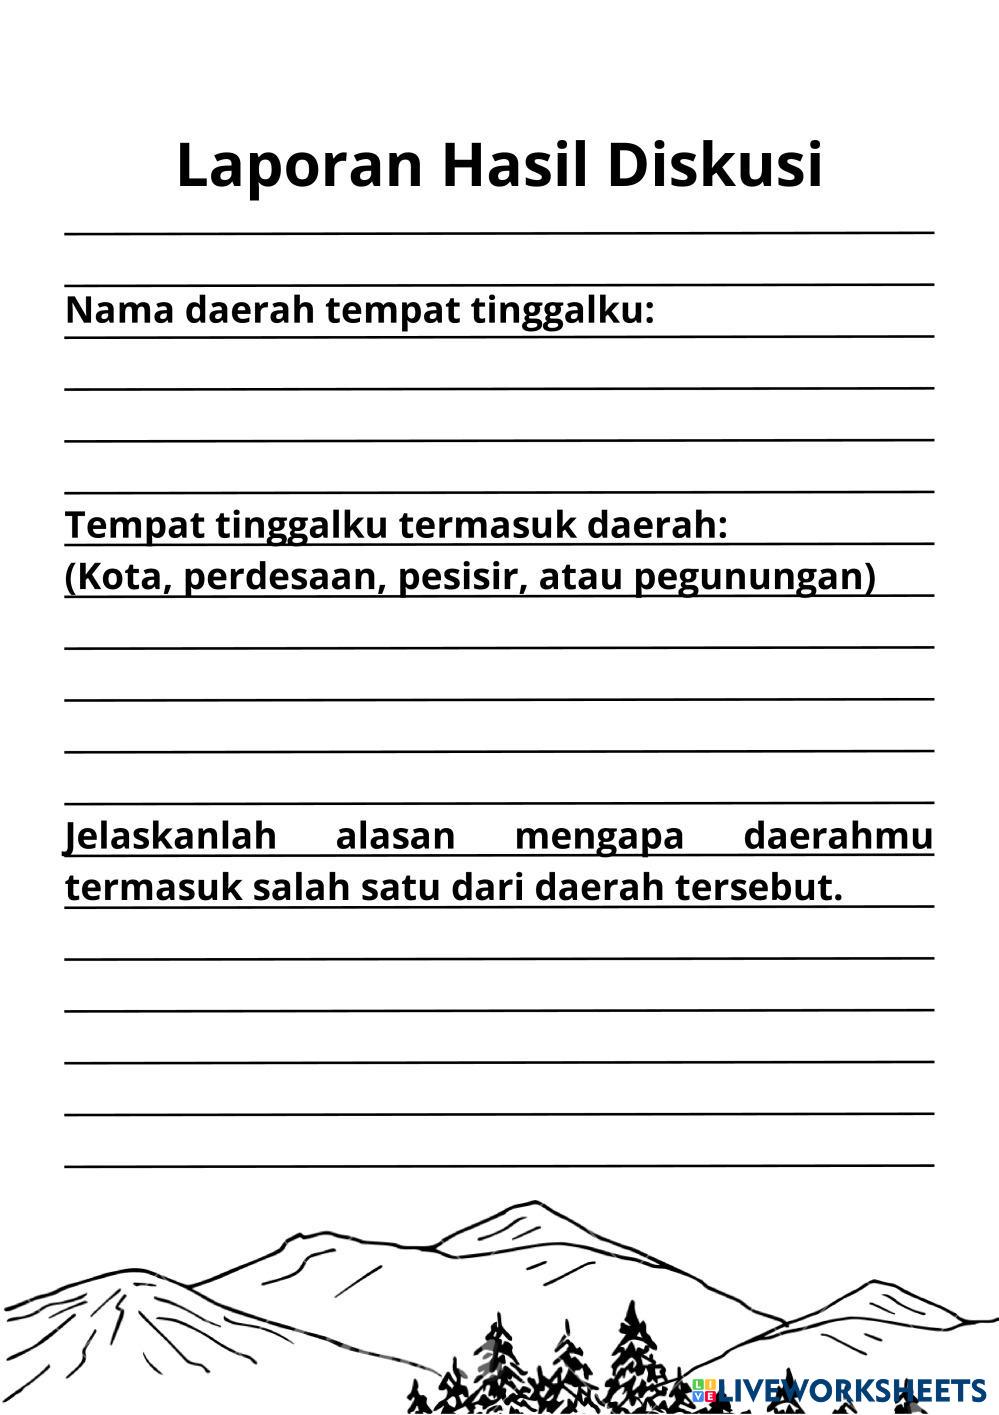 Laporan Hasil Diskusi
Nama daerah tempat tinggalku:
Tempat tinggalku termasuk daerah:
(Kota, perdesaan, pesisir, atau pegunungan)
Jelaskanlah alasan mengapa daerahmu
termasuk salah satu dari daerah tersebut.
LIVE LIVEWORKSHEETS